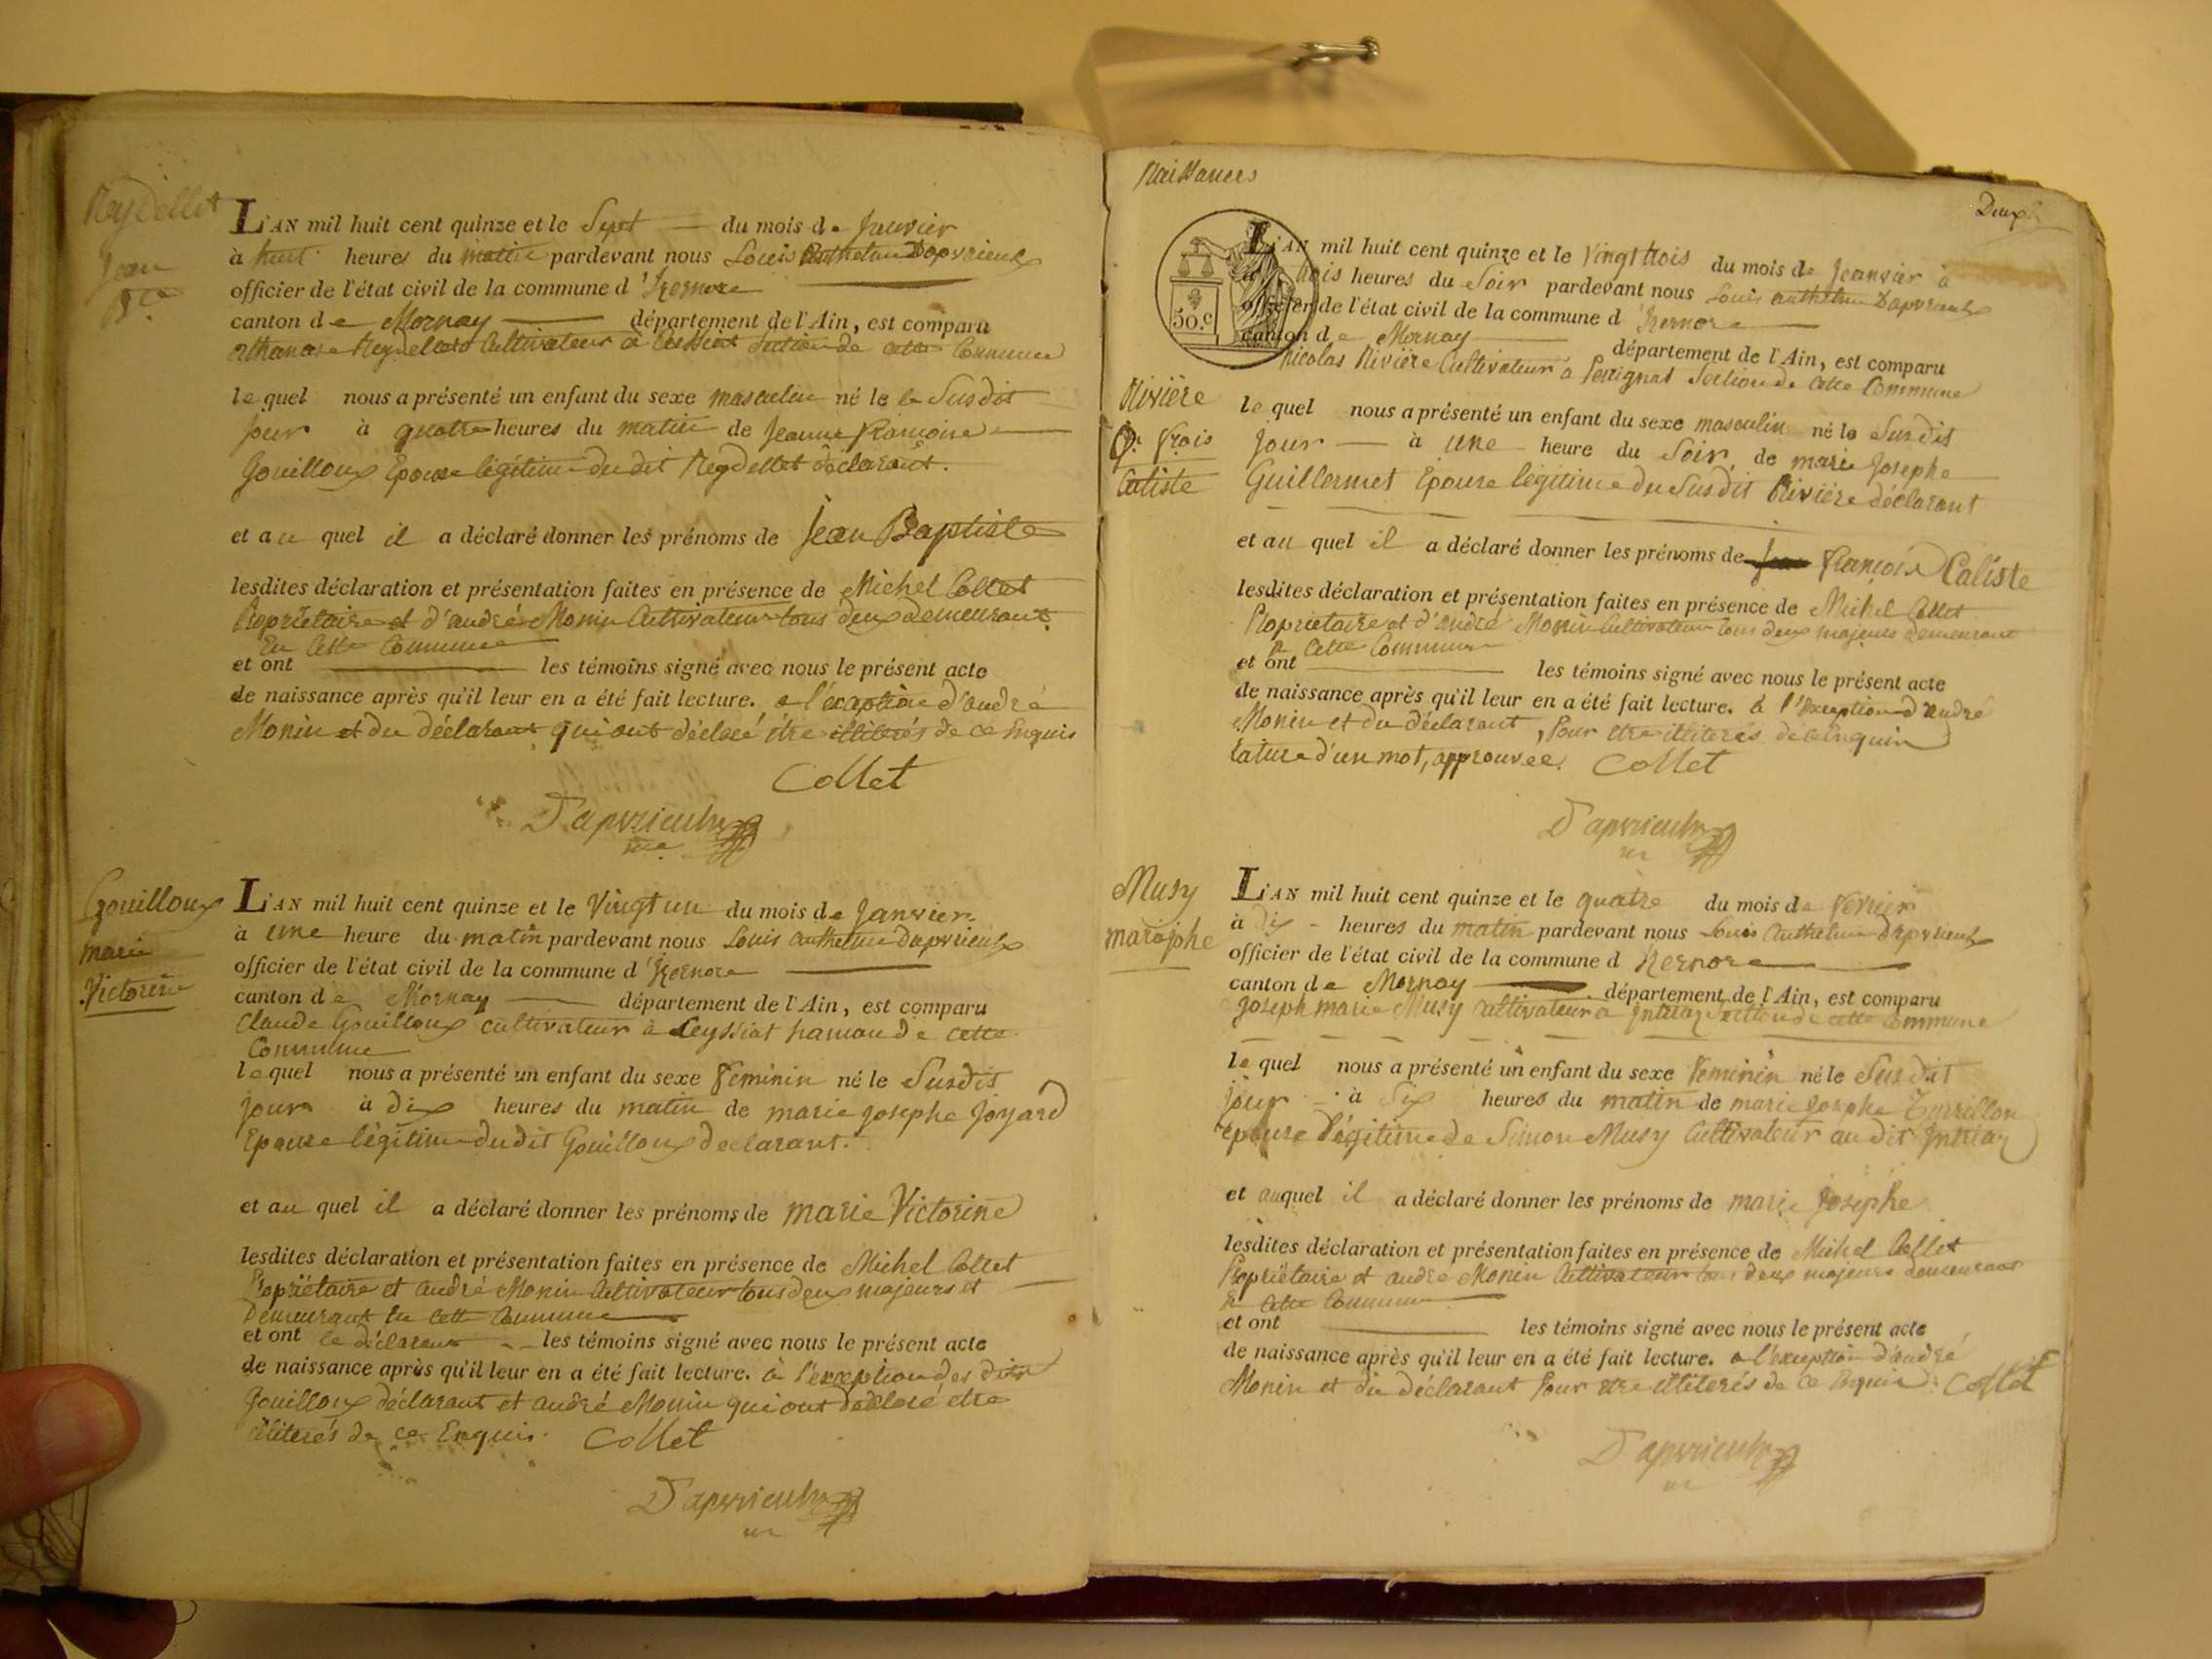 Reydellet
Jean
Bte
L'AN mil huit cent quinze et le Sept du mois de Janvier
à huit heures du matin pardevant nous Louis Anthelme Dapvrieulx
officier de l'état civil de la commune d'Izernore
canton de Mornay département de l'Ain, est comparu
athanase Reydellet Cultivateur à Ceissiat Section de cette Commune
lequel nous a présenté un enfant du sexe masculin né le le Susdit
jour à quatre heures du matin de Jeanne françoise
Gouilloux Epouse légitime du dit Reydellet déclarant.
et au quel il a déclaré donner les prénoms de Jean Baptiste
lesdites déclaration et présentation faites en présence de Michel Collet
Propriétaire et d'andré Monin Cultivateur tous deux demeurant
En Cette Commune
et ont les témoins signé avec nous le présent acte
de naissance après qu'il leur en a été fait lecture. a l'exception d'andré
Monin et du déclarant qui ont déclaré être illiterés de ce Enquis
Collet
Dapvrieulx
Gouilloux
marie
Victorine
L'AN mil huit cent quinze et le Vingt un du mois de Janvier
à une heure du matin pardevant nous Louis anthelme Dapvrieulx
officier de l'état civil de la commune d'Izernore
canton de Mornay département de l'Ain, est comparu
Claude Gouilloux cultivateur à Ceyssiat hamau de cette
Commune
lequel nous a présenté un enfant du sexe feminin né le Susdit
jour à dix heures du matin de marie josephe Joyard
Epouse légitime du dit Gouilloux declarant.
et au quel il a déclaré donner les prénoms de marie Victorine
lesdites déclaration et présentation faites en présence de Michel Collet
Propriétaire et andré Monin Cultivateur tous deux majeurs et
Demeurant En Cette Commune
et ont le déclarant les témoins signé avec nous le présent acte
de naissance après qu'il leur en a été fait lecture. à l'exception des dits
Gouilloux déclarant et andré Monin qui ont déclaré etre
illiterés de ce Enquis. Collet
Dapvrieulx
Naissances
Deux
L'AN mil huit cent quinze et le Vingt trois du mois de Jeanvier à
à trois heures du Soir pardevant nous Louis anthelme Dapvrieulx
officier de l'état civil de la commune d'Izernore
50.c
canton de Mornay département de l'Ain, est comparu
Nicolas Rivière Cultivateur à Perrignat Section de Cette Commune
Rivière
frois
Caliste
lequel nous a présenté un enfant du sexe masculin né le Susdit
jour à une heure du Soir de marie Josephe
Guillermet Epouse légitime du Susdit Rivière déclarant
et au quel il a déclaré donner les prénoms de Jean François Caliste
lesdites déclaration et présentation faites en présence de Michel Collet
Propriétaire et d'andré Monin Cultivateur tous deux majeurs demeurant
En Cette Commune
et ont les témoins signé avec nous le présent acte
de naissance après qu'il leur en a été fait lecture. à l'exception d'andré
Monin et du déclarant, Pour etre illiterés de ce enquis
rature d'un mot, approuvée. Collet
Dapvrieulx
Musy
L'AN mil huit cent quinze et le quatre du mois de fevrier
à dix heures du matin pardevant nous Louis Anthelme Dapvrieulx
officier de l'état civil de la commune d Izernore
canton de Mornay département de l'Ain, est comparu
joseph marie Musy cultivateur a Intriaz Section de cette Commune
lequel nous a présenté un enfant du sexe feminin né le Susdit
jour à Six heures du matin de marie josephe Turrillon
epouse légitime de Simon Musy Cultivateur au dit Intriaz
et auquel il a déclaré donner les prénoms de marie Josephe
lesdites déclaration et présentation faites en présence de Michel Collet
Propriétaire et andré Monin Cultivateur tous deux majeurs demeurant
En Cette Commune
et ont les témoins signé avec nous le présent acte
de naissance après qu'il leur en a été fait lecture. a l'exception d'andré
Monin et du déclarant Pour etre illiterés de ce enquis. Collet
Dapvrieulx